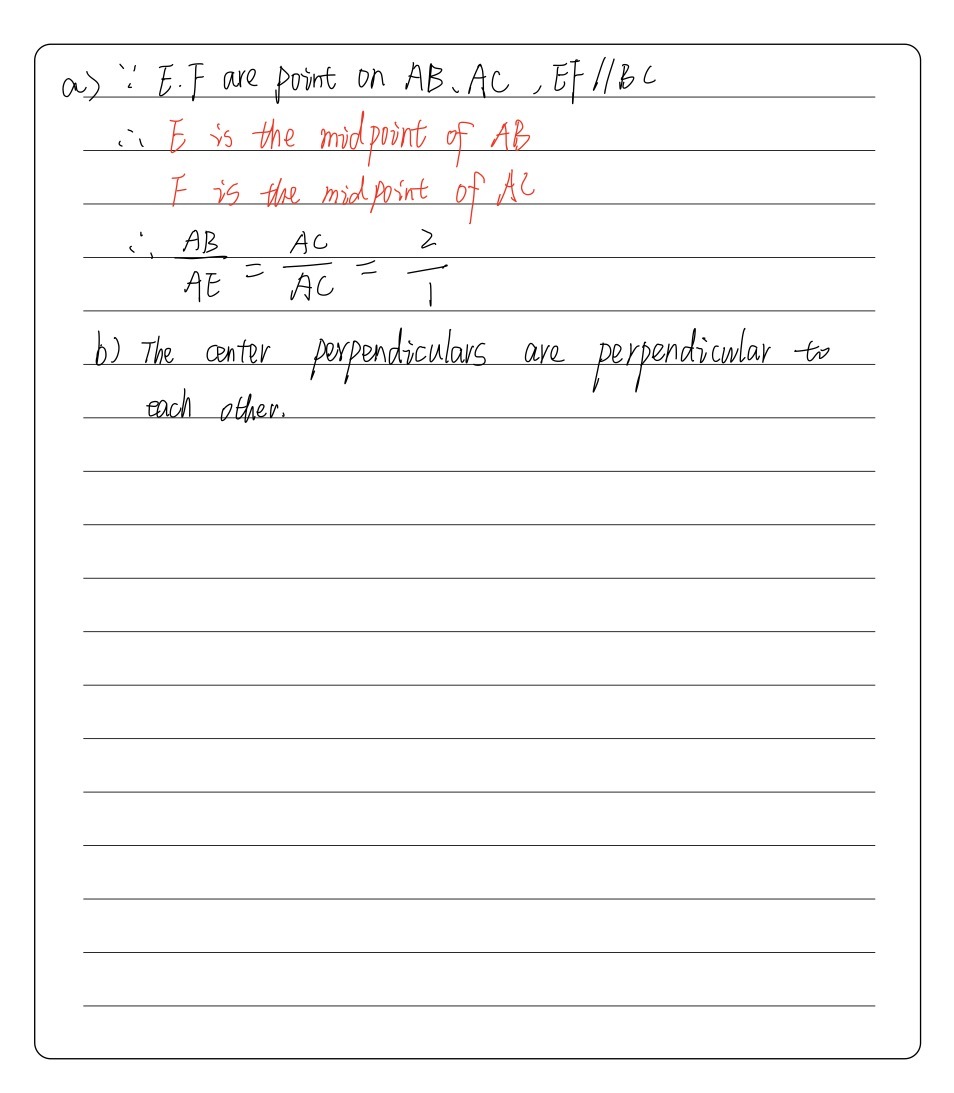 a) ∵ E.F are point on AB、AC , EF//BC
∴ E is the midpoint of AB
F is the midpoint of AC
∴ AB/AE = AC/AC = 2/1
b) The center perpendiculars are perpendicular to
each other.